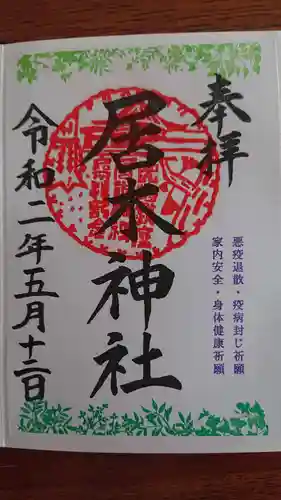 奉拝
悪疫退散・疫病封じ祈願
家内安全・身体健康祈願
居木神社
令和二年五月十三日